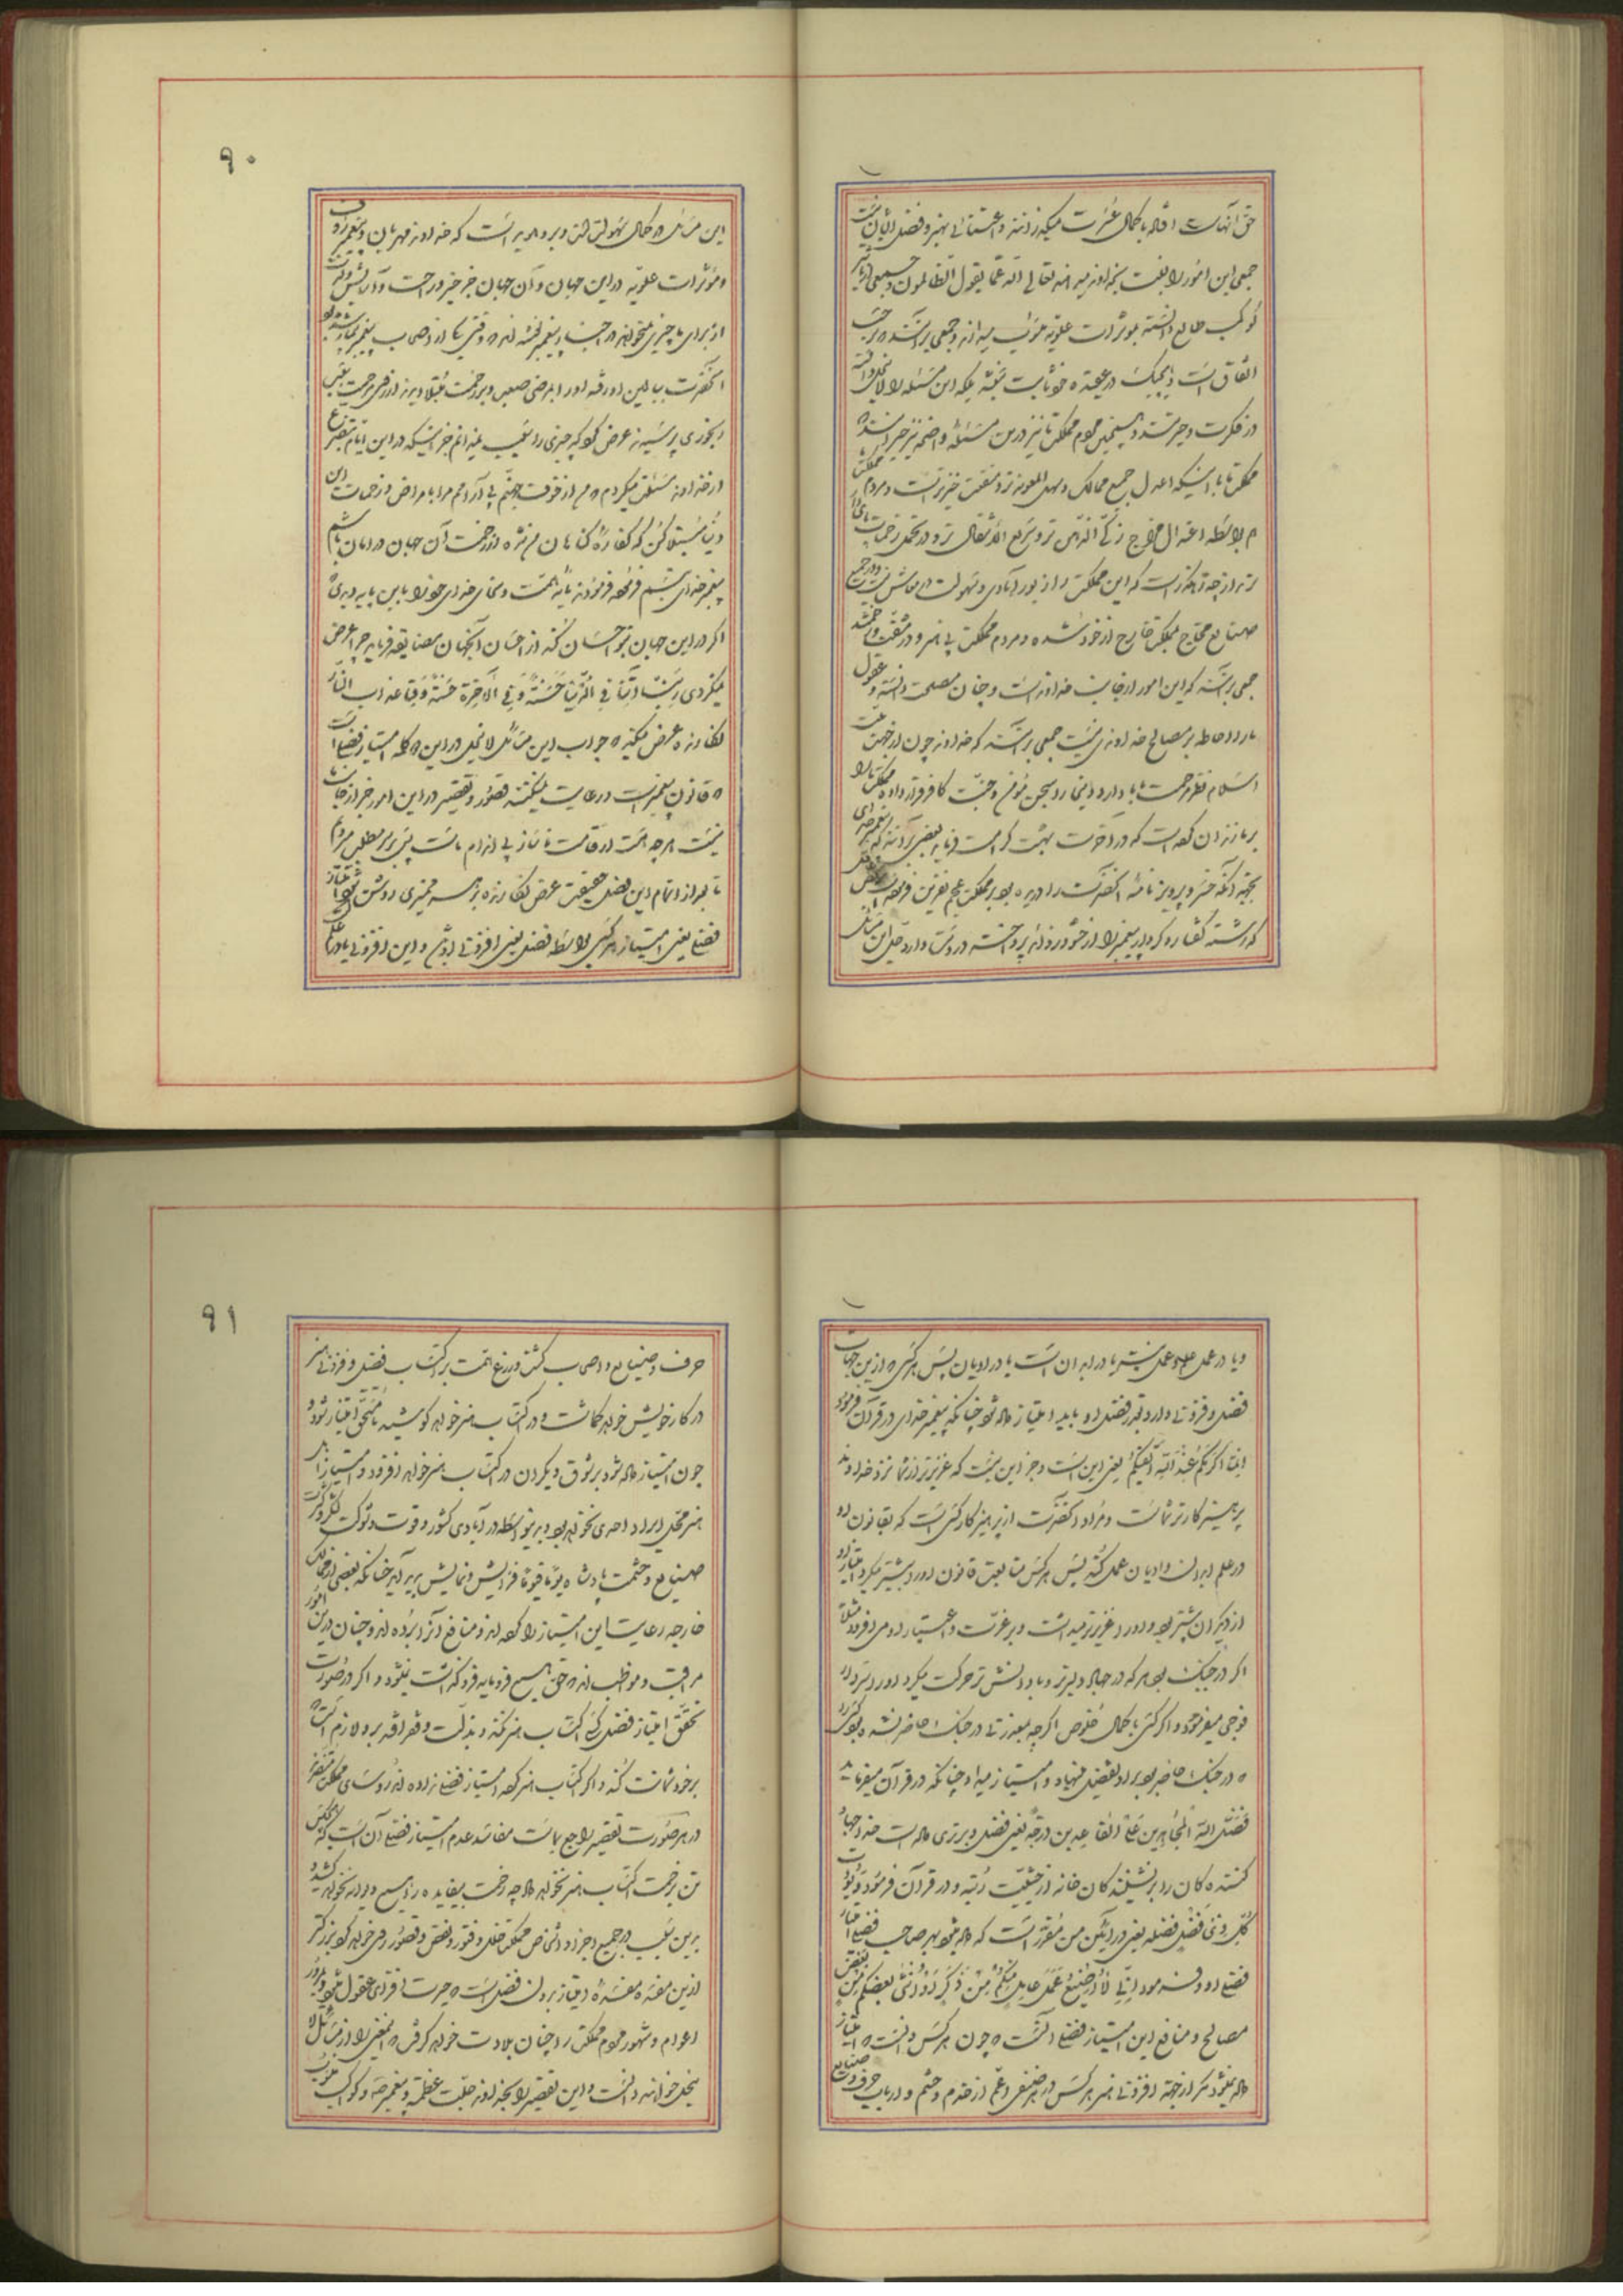 ۹۰
حق آنهاست افاده با کمال عسرت میگذرانند و اعتنائی بهنر و فضل ایشان نیست
جمعی این امور را نسبت بخداوند میدهند تعالی الله عما یقول الظالمون و جمعی از تأثیر
کواکب طالع دانسته بمؤثرات علویه منسوب میدانند و جمعی برآنند که بر حسب
اتفاق است و هیچیک در عقیده خود ثابت نیستند بلکه این مسئله را لاینحل دانسته
در فکرت و حیرتند و همچنین مردم مملکت ما نیز درین مسئله واضحه نیز حیرانند که
مملکت ما با اینکه اعدل جمیع ممالک و سهل المعونه تر و منفعت خیزتر است و مردم مملکت
ما بواسطه اعتدال مزاج زکی الذهن تر و سریع الانتقال تر و در تحمل زحمات
تر از چه راهگذر است که این مملکت را از بدو آبادی و سهولت در معاش نیست و در جمیع
صنایع محتاج بممالک خارج از خود شده و مردم مملکت بی هنر و در مشقت و زحمتند
جمعی برآنند که این امور از جانب خداوند است و چنان مصلحت دانسته و عقول
ما را احاطه بر مصالح خداوندی نیست جمعی برآنند که خداوند چون از جهت
اسلام نظر رحمت بما دارد دنیا را سجن مؤمن و جنت کافر قرار داده مملکت ما را
بر ما زندان کرده است که در آخرت بهشت کرامت فرماید بعضی برآنند که پیغمبر خدای
بجهة آنکه خسرو پرویز نامه آنحضرت را دریده بود بر مملکت عجم نفرین فرموده
که رشته گفتار و کردار پیغمبر را از خود دور نداند پرداخته در دست دارد حل این مسائل
این مسائل در کمال سهولت است و بر او بدیهی است که خداوند مهربان و پیغمبر رؤف
و مؤثرات علویه در این جهان و آن جهان جز خیر و راحت و آرایش و لذت
از برای ما چیزی نمیخواهند و جناب پیغمبر وقتی یکی از اصحاب پیغمبر بیمار شده بود
آنحضرت ببالین او رفته او را بمرضی صعب و بزحمت مبتلا دیدند از وی موجب تعب
رنجوری پرسیدند عرض کرد که چیزی را سبب نمیدانم جز اینکه در این ایام بتضرع
از خداوند مسئلت میکردم که من از خوف جهنم بی آرامم مرا بامراض و زحمات این
دنیا مبتلا کن که کفاره گناهان من شده از زحمت آن جهان در امان باشم
پیغمبر خدای تبسم فرموده فرمودند پایه همت و سخای خدای خود را باین پایه دیدی
اگر در این جهان بتو احسان کند از احسان آنجهان مضایقه فرماید چرا عرض
نیکردی ربنا آتنا فی الدنیا حسنة و فی الآخرة حسنة و قنا عذاب النار
نگارنده عرض میکند که جواب این مسائل لاینحل در این کلمه امتیاز فضلی است
که قانون پیغمبر است در رعایت نمیکنند قصور و تقصیر در این امور جز از جانب ما
نیست هر چه هست از قامت ناساز بی اندام ماست پس بر سر مطلب میرویم
تا بعد از اتمام این فصل حقیقت عرض نگارنده بر هر ممیزی روشن شود
فضلی یعنی امتیاز هر کسی بواسطه فضل یعنی افزونی اوست و این افزونی یا در علم
۹۱
و یا در عمل علم و عمل نیست یا در ابدان است یا در ادیان پس هر کسی که ازین جهات
فضل و فزونی دارد بقدر فضل او باید امتیاز داده شود چنانکه پیغمبر خدای در قرآن فرموده
ان اکرمکم عند الله اتقیکم یعنی این است و جز این نیست که عزیزتر از شما نزد خداوند
پرهیزکارتر شماست و مراد آنحضرت از پرهیزکار کسی است که بقانون او
در علم ابدان و ادیان عمل کند پس هر کس متابعت قانون او را بیشتر میکرد امتیاز او
از دیگران بیشتر بود و او را عزیزتر میداشت و بر عزت و اعتبار او می افزود مثلا
اگر در جنگ بود هر که در جهاد دلیرتر و با دانش تر حرکت میکرد او را سردار
فوجی میفرمود و اگر کسی با کمال خلوص اگر چه بعذر در جنگ حاضر نشده بود کسی را
که در جنگ حاضر بود بر او تفضیل مینهاد و امتیاز میداد چنانکه در قرآن میفرماید
فضل الله المجاهدین علی القاعدین درجة یعنی فضل و برتری داده است خدا جهاد
کننده گان را بر نشینندگان خانه از حیثیت رتبه و در قرآن فرموده و یؤت
کل ذی فضل فضله یعنی در آئین من مقرر است که داده میشود بهر صاحب فضلی امتیاز
فضلی او و فرموده انی لا اضیع عمل عامل منکم من ذکر او انثی بعضکم من بعض
مصالح و منافع این امتیاز فضلی آنست که چون هر کس دانست که امتیاز
داده نمیشود مگر از جهة افزونی هنر هر کس در هر صنفی اعم از خدم و حشم و ارباب حرف و صنایع
حرف و صنایع و اصحاب کشت و زرع همت بر اکتساب فضل و فزونی هنر
در کار خویش خواهد گماشت و در اکتساب هنر خواهد کوشید تا مستحق امتیاز شود و
چون امتیاز داده شود بر شوق دیگران در اکتساب هنر خواهد افزود و امتیاز آن
هنر محل ایراد احدی نخواهد بود و بدینواسطه در آبادی کشور و قوت و شوکت لشکر و کثرت
صنایع و حشمت پادشاه یوما فیوما فزایش و نمایش پدید آید چنانکه بعضی از ممالک
خارجه رعایت این امتیاز را کرده اند و منافع آنرا برده اند و چنان درین امور
مراقب و مواظب اند که حق هیچ فرومایه فروگذاشت نمیشود و اگر در صورت
تحقق امتیاز فضلی کسی اکتساب هنر نکند و بذلت و فقر افتد بر او لازم است که
بر خود شماتت کند و اگر اکتساب هنر کرده امتیاز فضلی نداده اند رؤسای مملکت مقصرند
در هر صورت تقصیر راجع بماست مفاسد عدم امتیاز فضلی آن است که هیچکس
تن بزحمت اکتساب هنر نخواهد داد چه زحمت بیفایده را هیچ دیوانه نخواهد کشید و
بدین سبب در جمیع اجزا و اشخاص مملکت خلل و فتور و نقص و قصور روی خواهد کرد بزرگتر
ازین مفسده مفسده امتیاز بدون فضل است که حیرت افزای عقول میشود و بمرور
اعوام و شهور مردم مملکت را چنان بلادت خواهد گرفت که بعضی را از مسائل لا
ینحل خواهند دانست و این تقصیر را بخداوند جلت عظمته و پیغمبر و کواکب منسوب